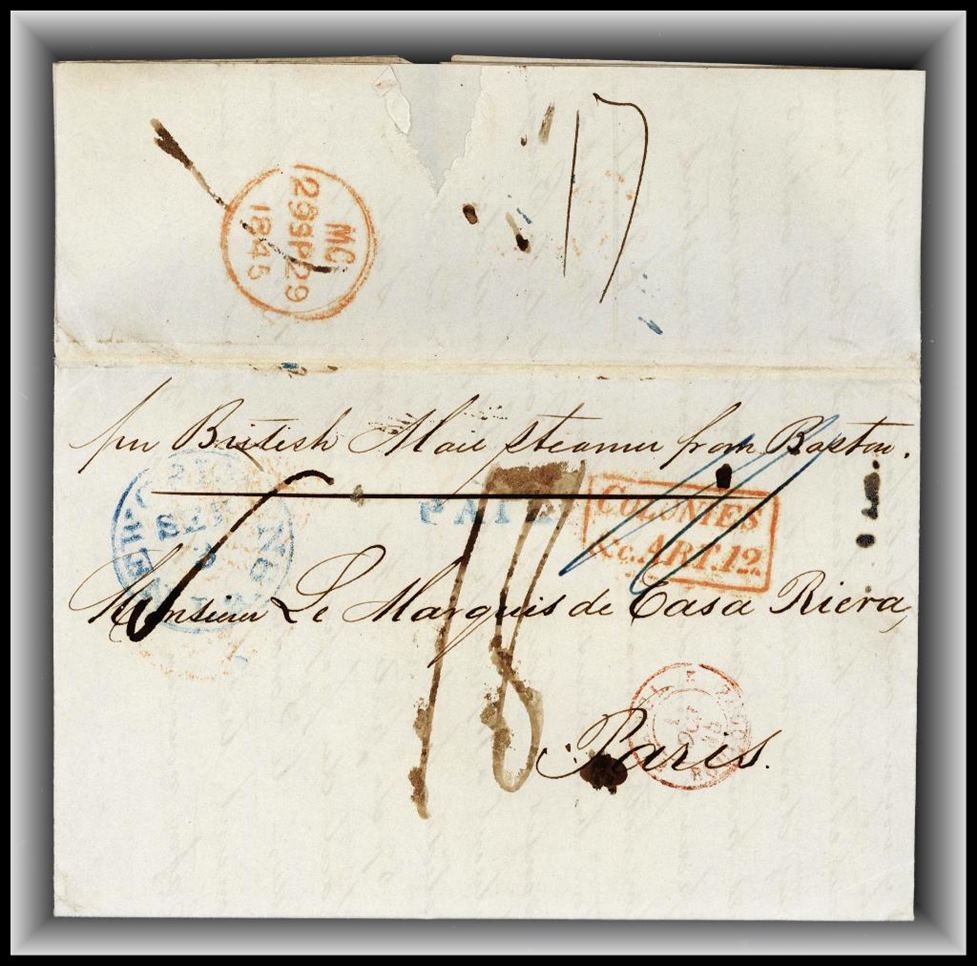 17
MC
29SP29
1845
per British Mail steamer from Boston.
SEP
PAID
COLONIES
&c. ART. 12.
Monsieur Le Marquis de Casa Riera,
18
Paris.